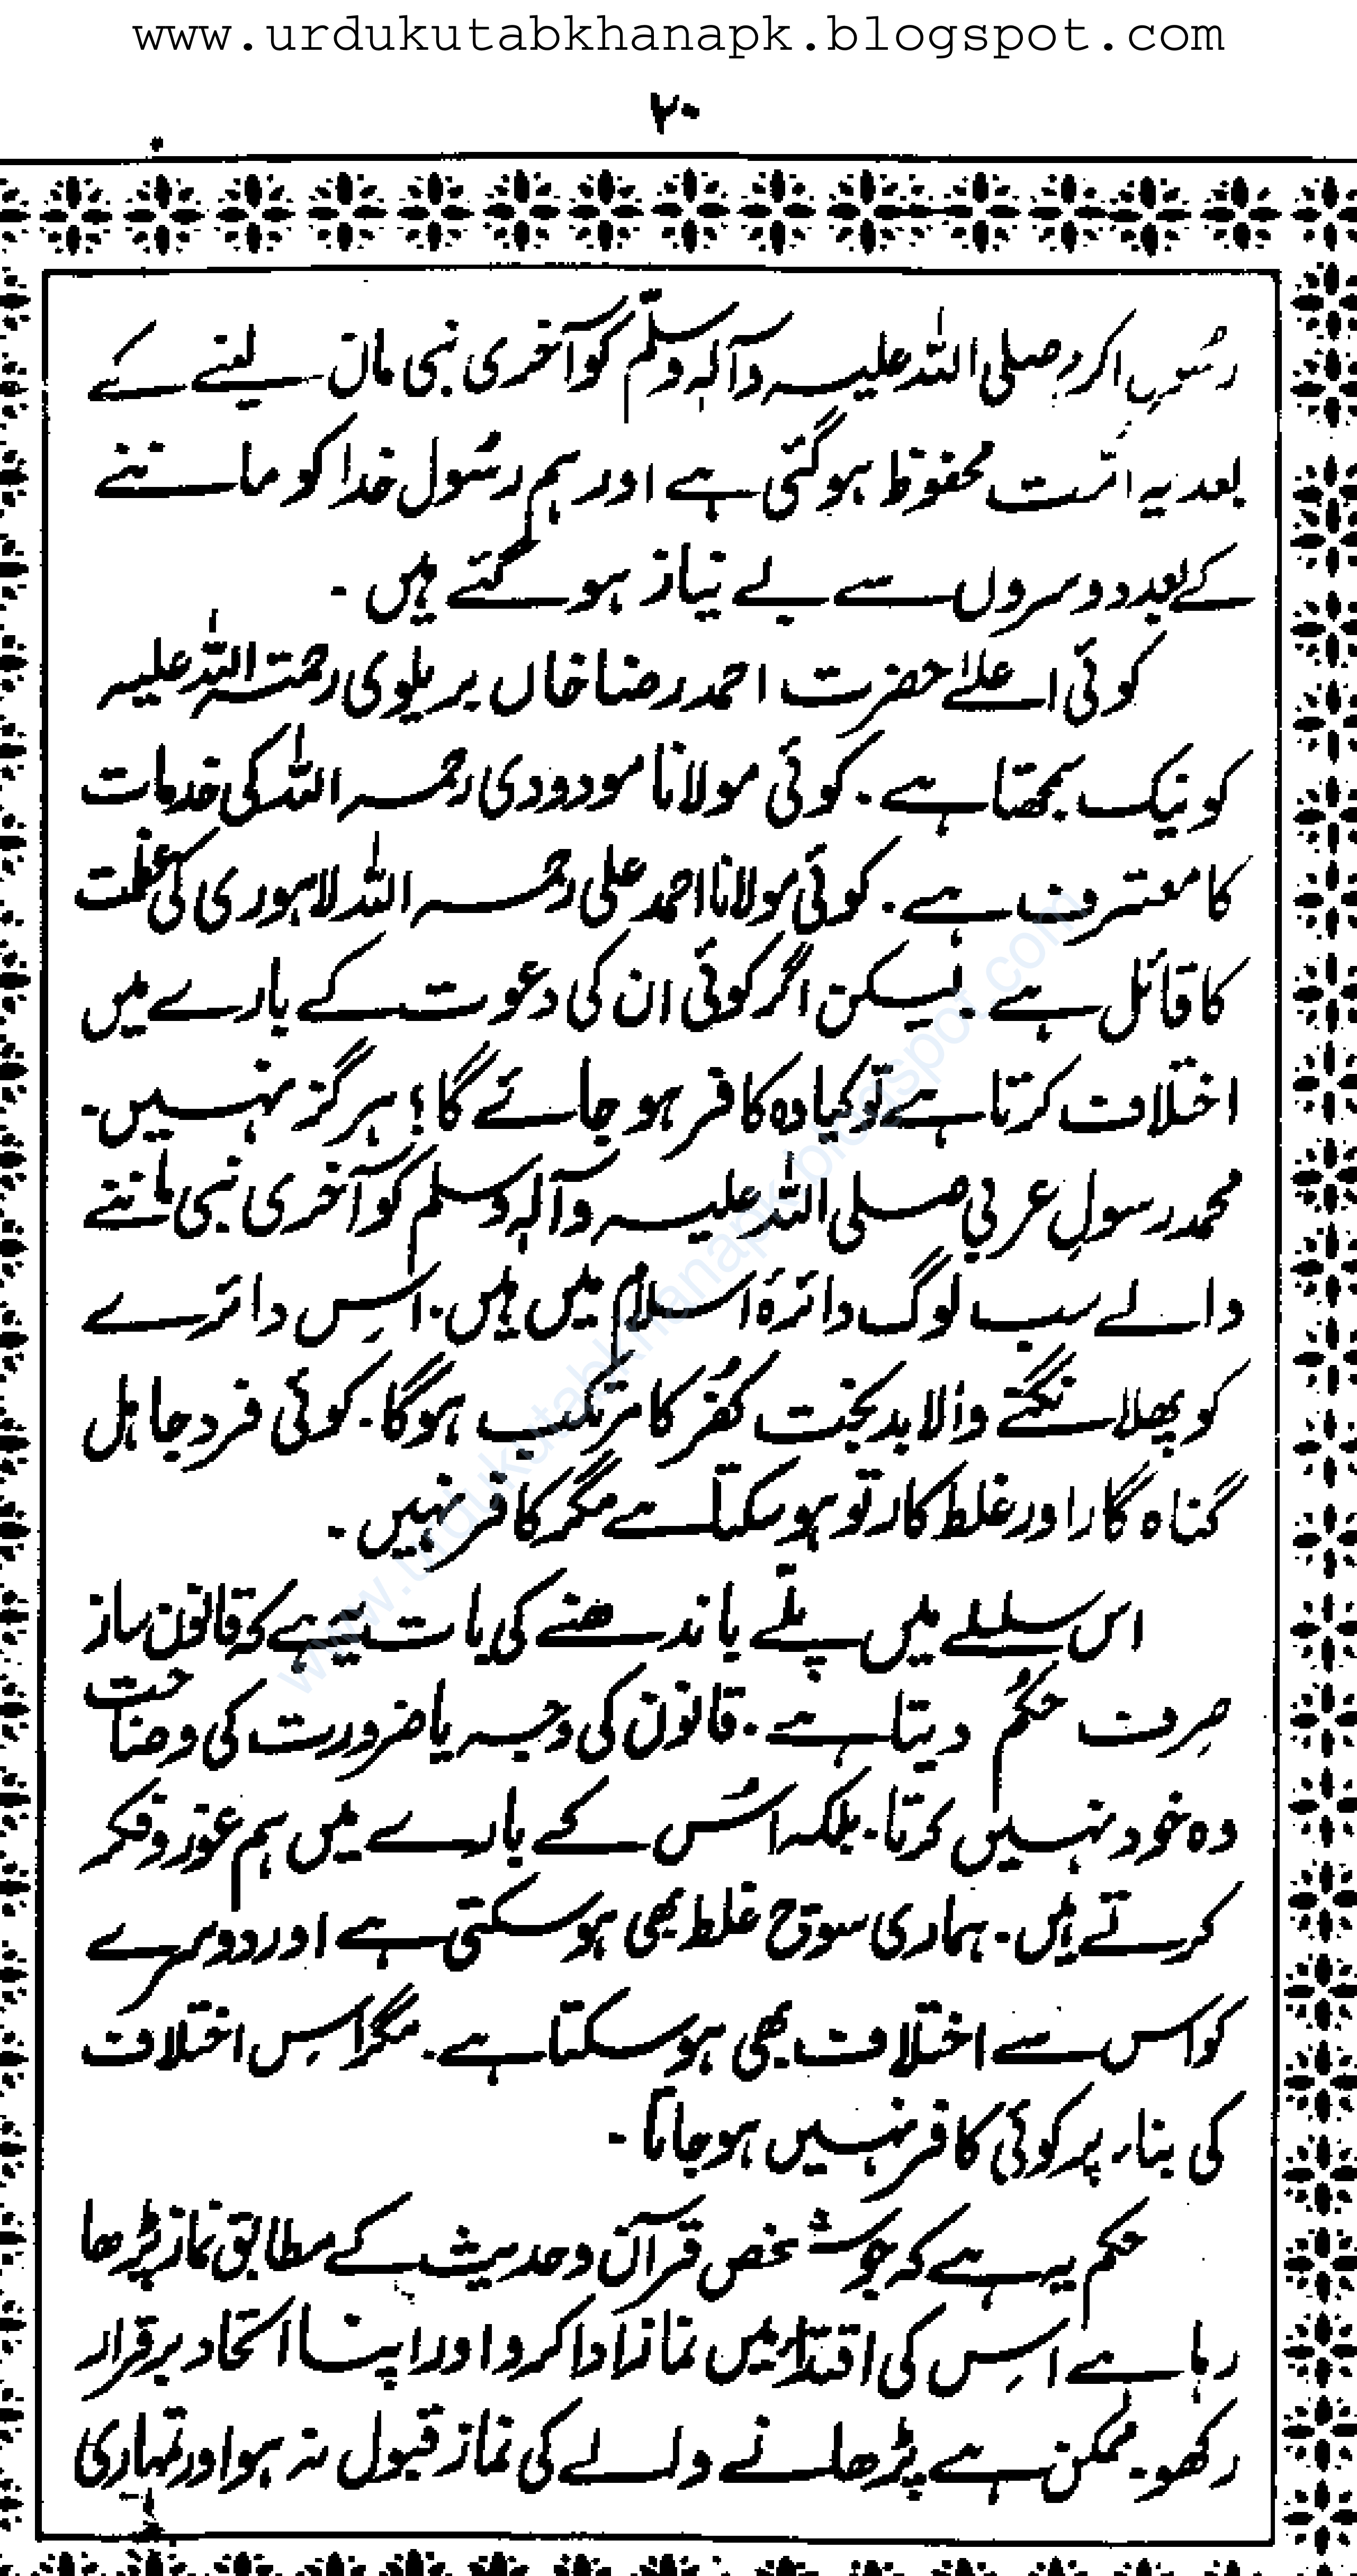 www.urdukutabkhanapk.blogspot.com
۲۰
رسُولِ اکرم صلی اللہ علیہ وآلہٖ وسلّم کو آخری نبی مان لینے کے
بعد یہ امّت محفوظ ہو گئی ہے اور ہم رسُول خدا کو ماننے
کے بعد دوسروں سے بے نیاز ہو گئے ہیں ۔
کوئی اعلےٰ حضرت احمد رضا خاں بریلوی رحمتہ اللہ علیہ
کو نیک سمجھتا ہے ۔ کوئی مولانا مودودی رحمہ اللہ کی خدمات
کا معترف ہے ۔ کوئی مولانا احمد علی رحمہ اللہ لاہوری کی عظمت
کا قائل ہے لیکن اگر کوئی ان کی دعوت کے بارے میں
اختلاف کرتا ہے تو کیا وہ کافر ہو جائے گا؟ ہرگز نہیں ۔
محمد رسولِ عربی صلی اللہ علیہ وآلہٖ وسلم کو آخری نبی ماننے
والے سب لوگ دائرۂ اسلام میں ہیں ۔ اسِ دائرے
کو پھلانگنے والا بدبخت کفُر کا مرتکب ہوگا ۔ کوئی فرد جاہل
گناہ گار اور غلط کار تو ہو سکتا ہے مگر کافر نہیں ۔
اس سلسلے میں پلّے باندھنے کی بات یہ ہے کہ قانون ساز
صِرف حکمُ دیتا ہے ۔ قانون کی وجہ یا ضرورت کی وضاحت
وہ خود نہیں کرتا ۔ بلکہ اسُ کے بارے میں ہم غور و فکر
کرتے ہیں ۔ ہماری سوچ غلط بھی ہو سکتی ہے اور دوسرے
کو اس سے اختلاف بھی ہو سکتا ہے ۔ مگر اسِ اختلاف
کی بناء پر کوئی کافر نہیں ہو جاتا ۔
حکم یہ ہے کہ جو شخص قرآن و حدیث کے مطابق نماز پڑھا
رہا ہے اسِ کی اقتداء میں نماز ادا کرو اور اپنا اتحاد برقرار
رکھو ۔ ممکن ہے پڑھانے والے کی نماز قبول نہ ہو اور تمہاری
www.urdukutabkhanapk.blogspot.com